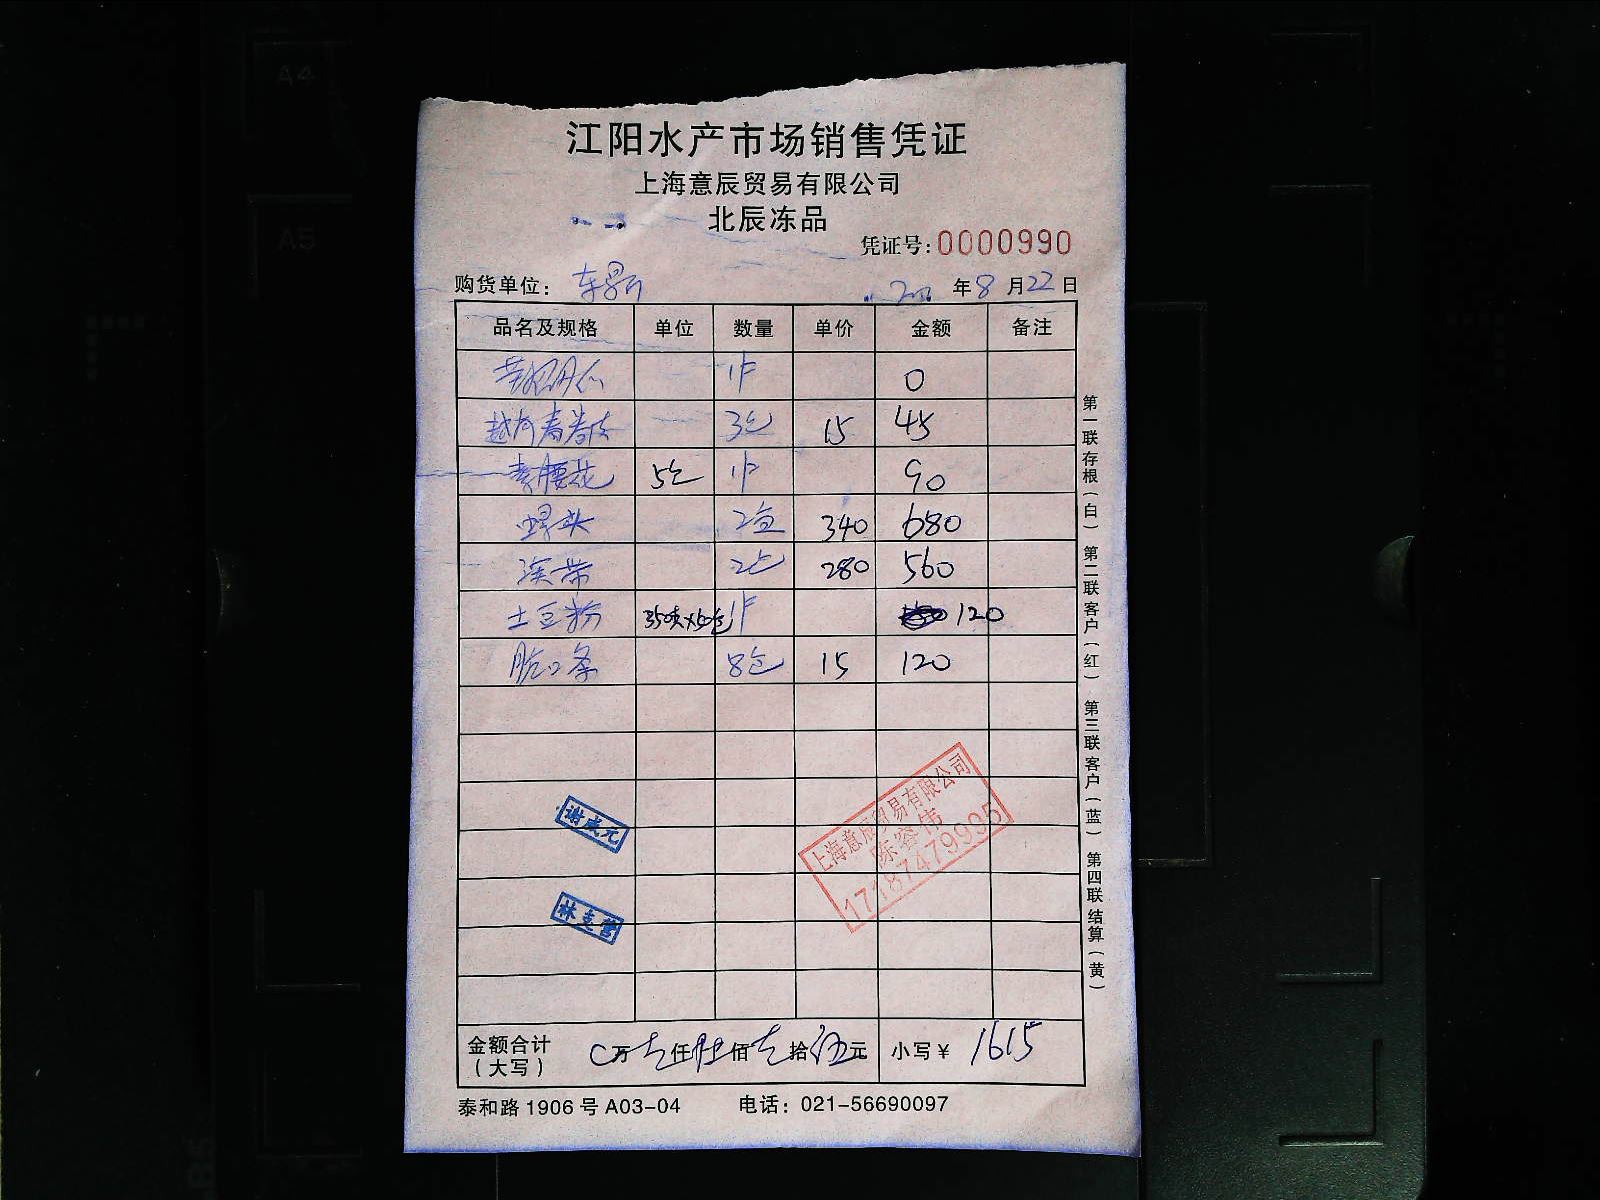 A4
A5
江阳水产市场销售凭证
上海意辰贸易有限公司
北辰冻品
凭证号:0000990
购货单位: 年8月22日
品名及规格 单位 数量 单价 金额 备注
1件 0
越南春卷皮 3包 15 45
素腰花 5包 1件 90
螺头 2包 340 680
2包 280 560
土豆粉 1件 120
脆口条 8包 15 120
金额合计(大写) 0万壹仟陆佰壹拾伍元 小写¥ 1615
泰和路1906号A03-04 电话: 021-56690097
第一联存根(白) 第二联客户(红) 第三联客户(蓝) 第四联结算(黄)
上海意辰贸易有限公司
陈容伟
17187479995
谢成元